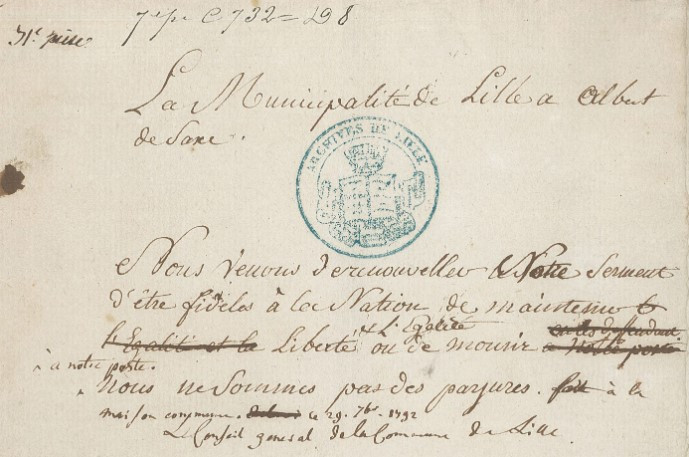 31e piece
La Municipalité de Lille a Albert
de Saxe.
ARCHIVES DE LILLE
Nous venons de renouveller Notre Serment
d'être fideles à la Nation, de maintenir
l'Egalité et la Liberté et L'Egalité ou de mourir a notre poste
à notre poste.
nous ne Sommes pas des parjures. fait à la
maison commune. le 29. 7bre. 1792
Le Conseil general de la Commune de Lille.